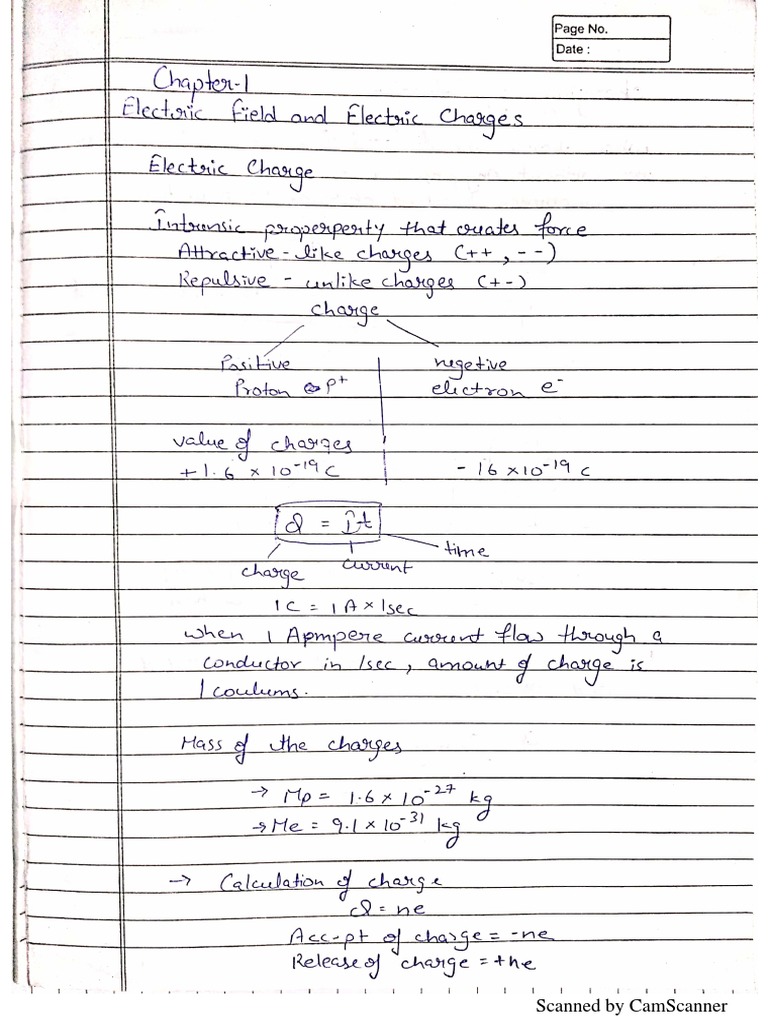 Page No.
Date :
Chapter-1
Electric Field and Electric Charges
Electric Charge
Intrinsic properperty that creates force
Attractive - like charges (++ , --)
Repulsive - unlike charges (+-)
charge
Positive negetive
Proton p+ electron e-
value of charges
+1.6 × 10-19 C - 16 ×10-19 C
Q = It
charge current time
1C = 1A × 1sec
when 1 Apmpere current flow through a
conductor in 1sec, amount of charge is
1 coulums.
Mass of the charges
→ Mp = 1.6 × 10-27 kg
→ Me = 9.1 × 10-31 kg
→ Calculation of charge
Q = ne
Acc-pt of charge = -ne
Release of charge = +ne
Scanned by CamScanner